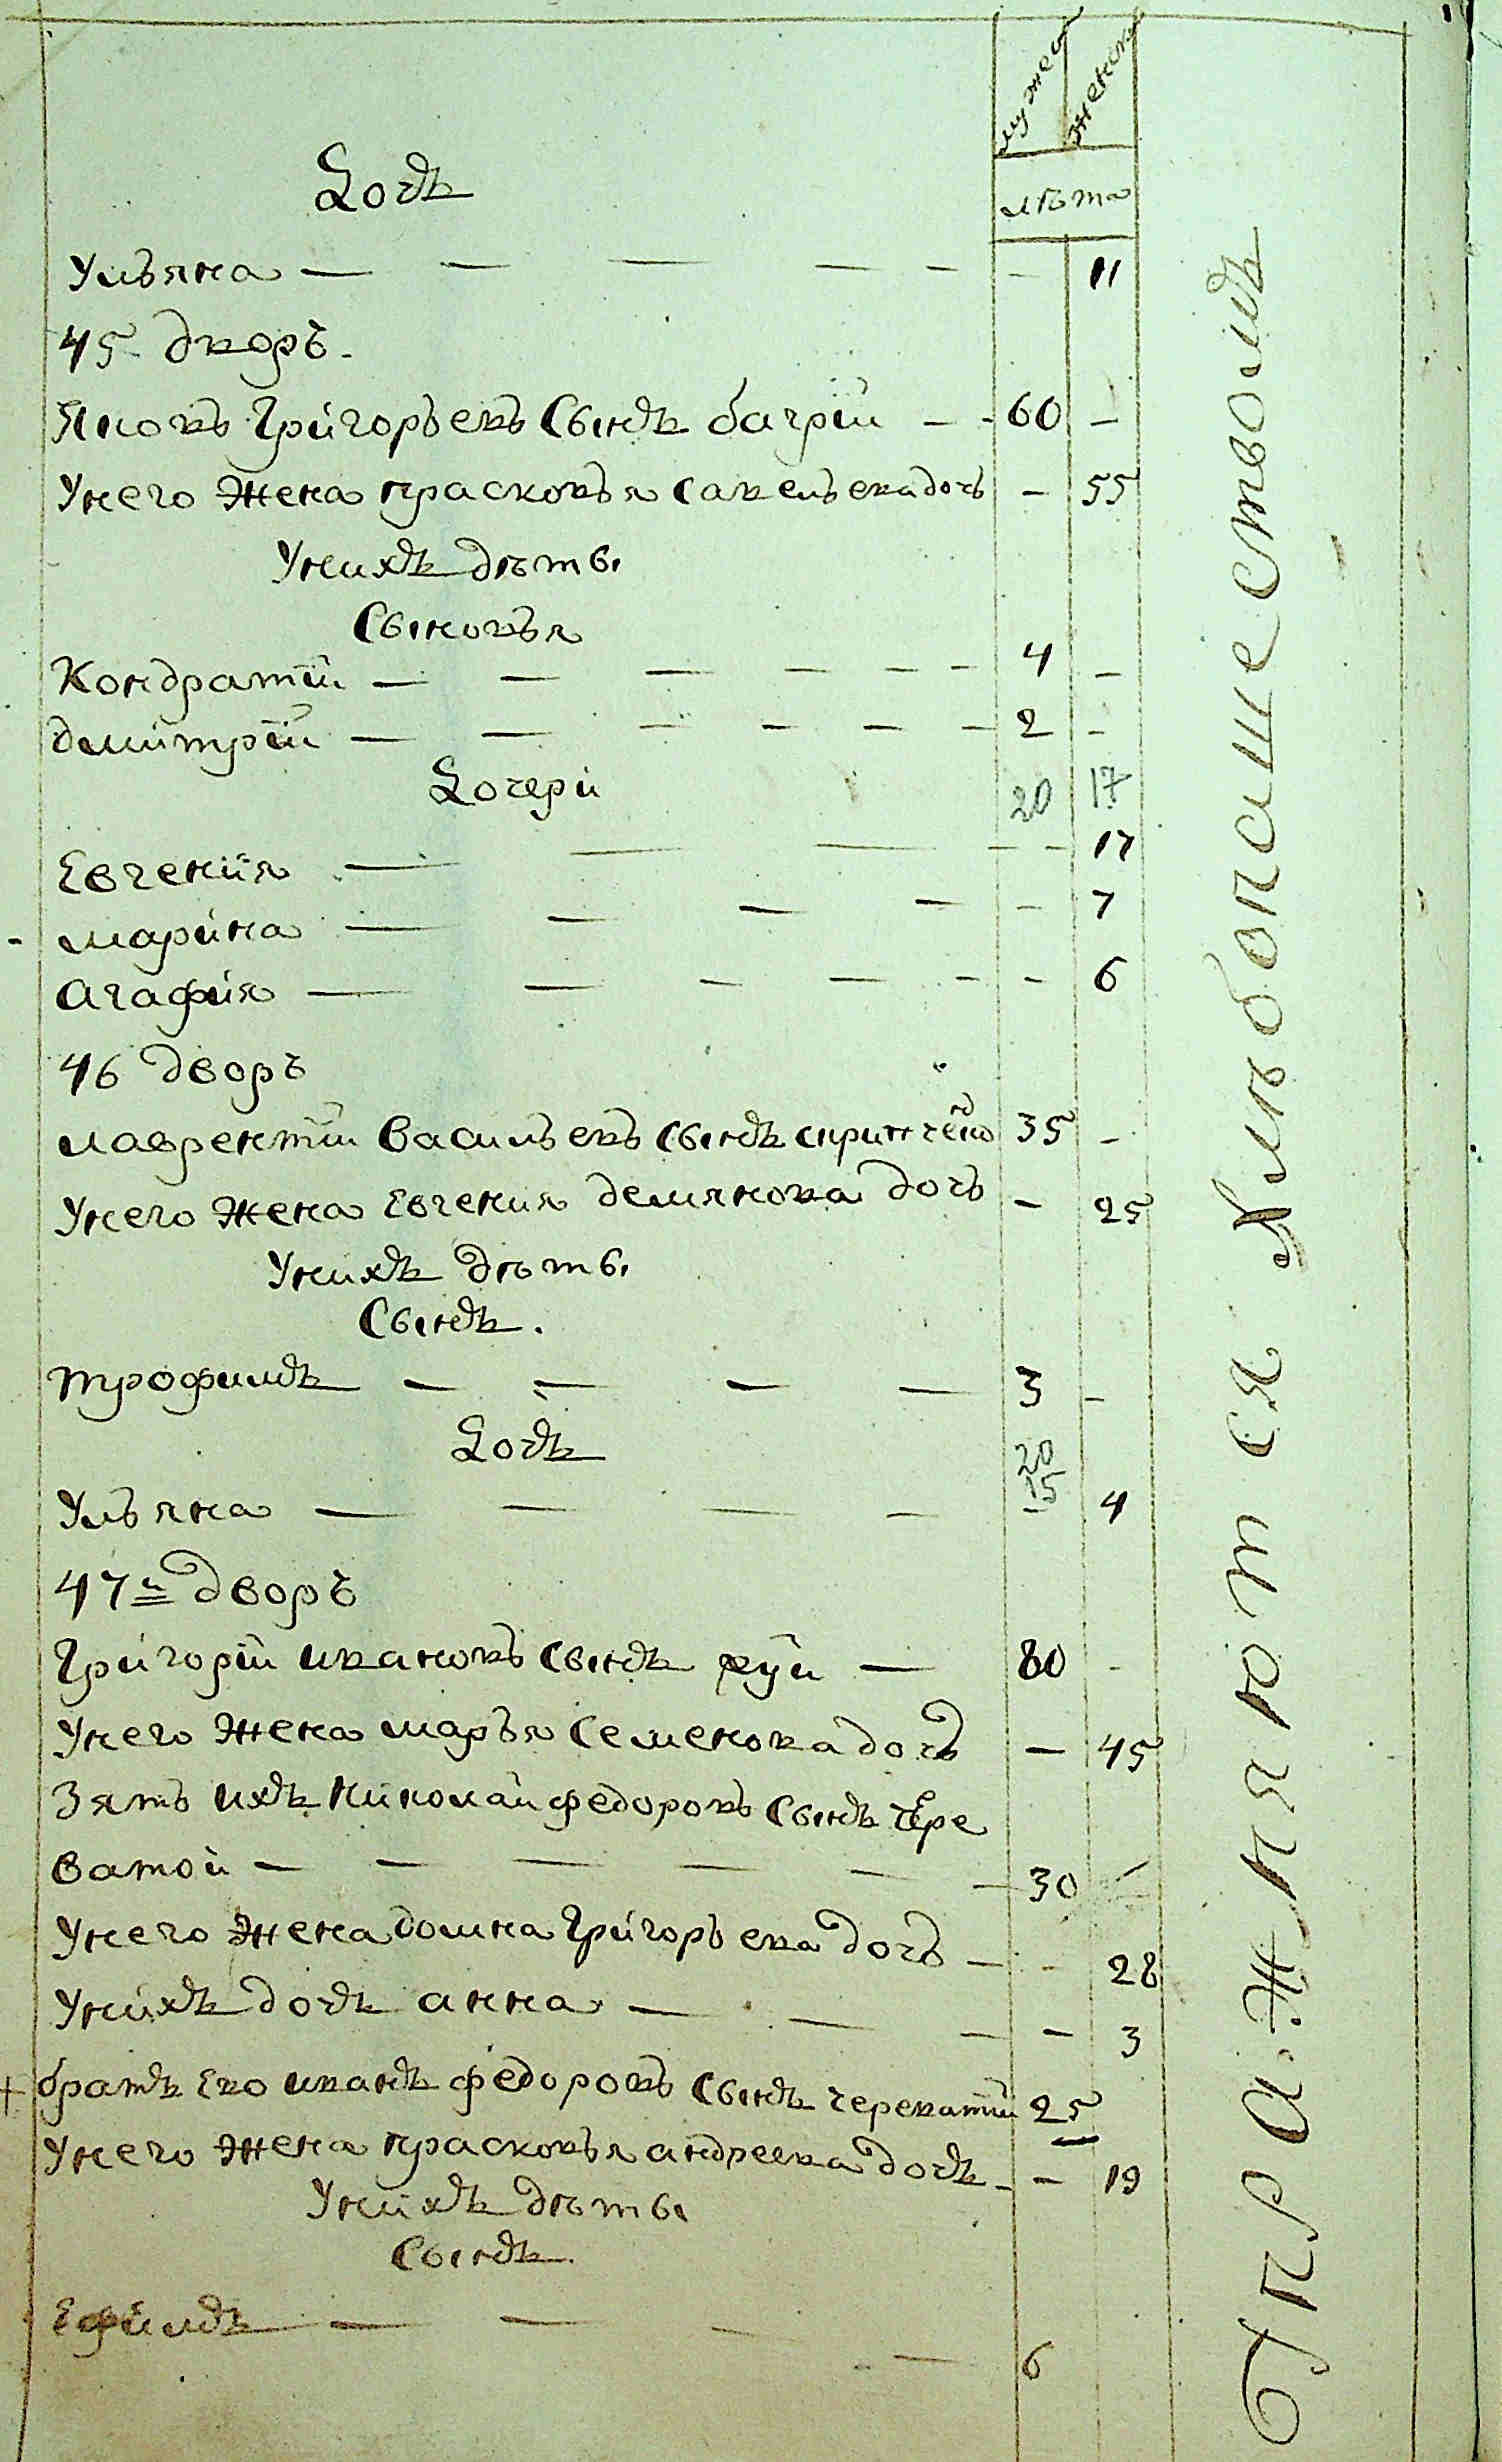 мужеска женска
лѣта
Дочь
Ульяна — — — — — — 11
45 дворъ.
Яковъ Григорьевъ Сынъ багрій — - 60 —
Унего жена прасковья савельева дочь — 55
Унихъ дѣты
Сыновья
Кондратій — — — — — — 4 —
дмитрій — — — — — — 2 -
Дочери 20 17
Евгения — — — - - 17
марина — — — — - 7
Агафия — — — — - - 6
46 дворъ
лаврентій Васильевъ Сынъ 35 -
Унего жена Евгения демянова дочь — 25
Унихъ дѣты
Сынъ.
трофимъ — — — — 3 -
Дочь 20
15
Ульяна — — — — - 4
47й дворъ
Григорій ивановъ Сынъ — 80 -
Унего жена марья Семенова дочь — 45
Зять ихъ Николай федоровъ Сынъ чере
ватой — — — — — — 30 —
Унего жена домна Григорьева дочь — - 28
Унихъ дочь анна — — — — 3
+ братъ Его иванъ федоровъ Сынъ череватій 25
Унего жена прасковья андреева дочь - — 19
Унихъ дѣты
Сынъ.
Ефимъ — — — — 6
упражняются въ хлѣбопашествомъ